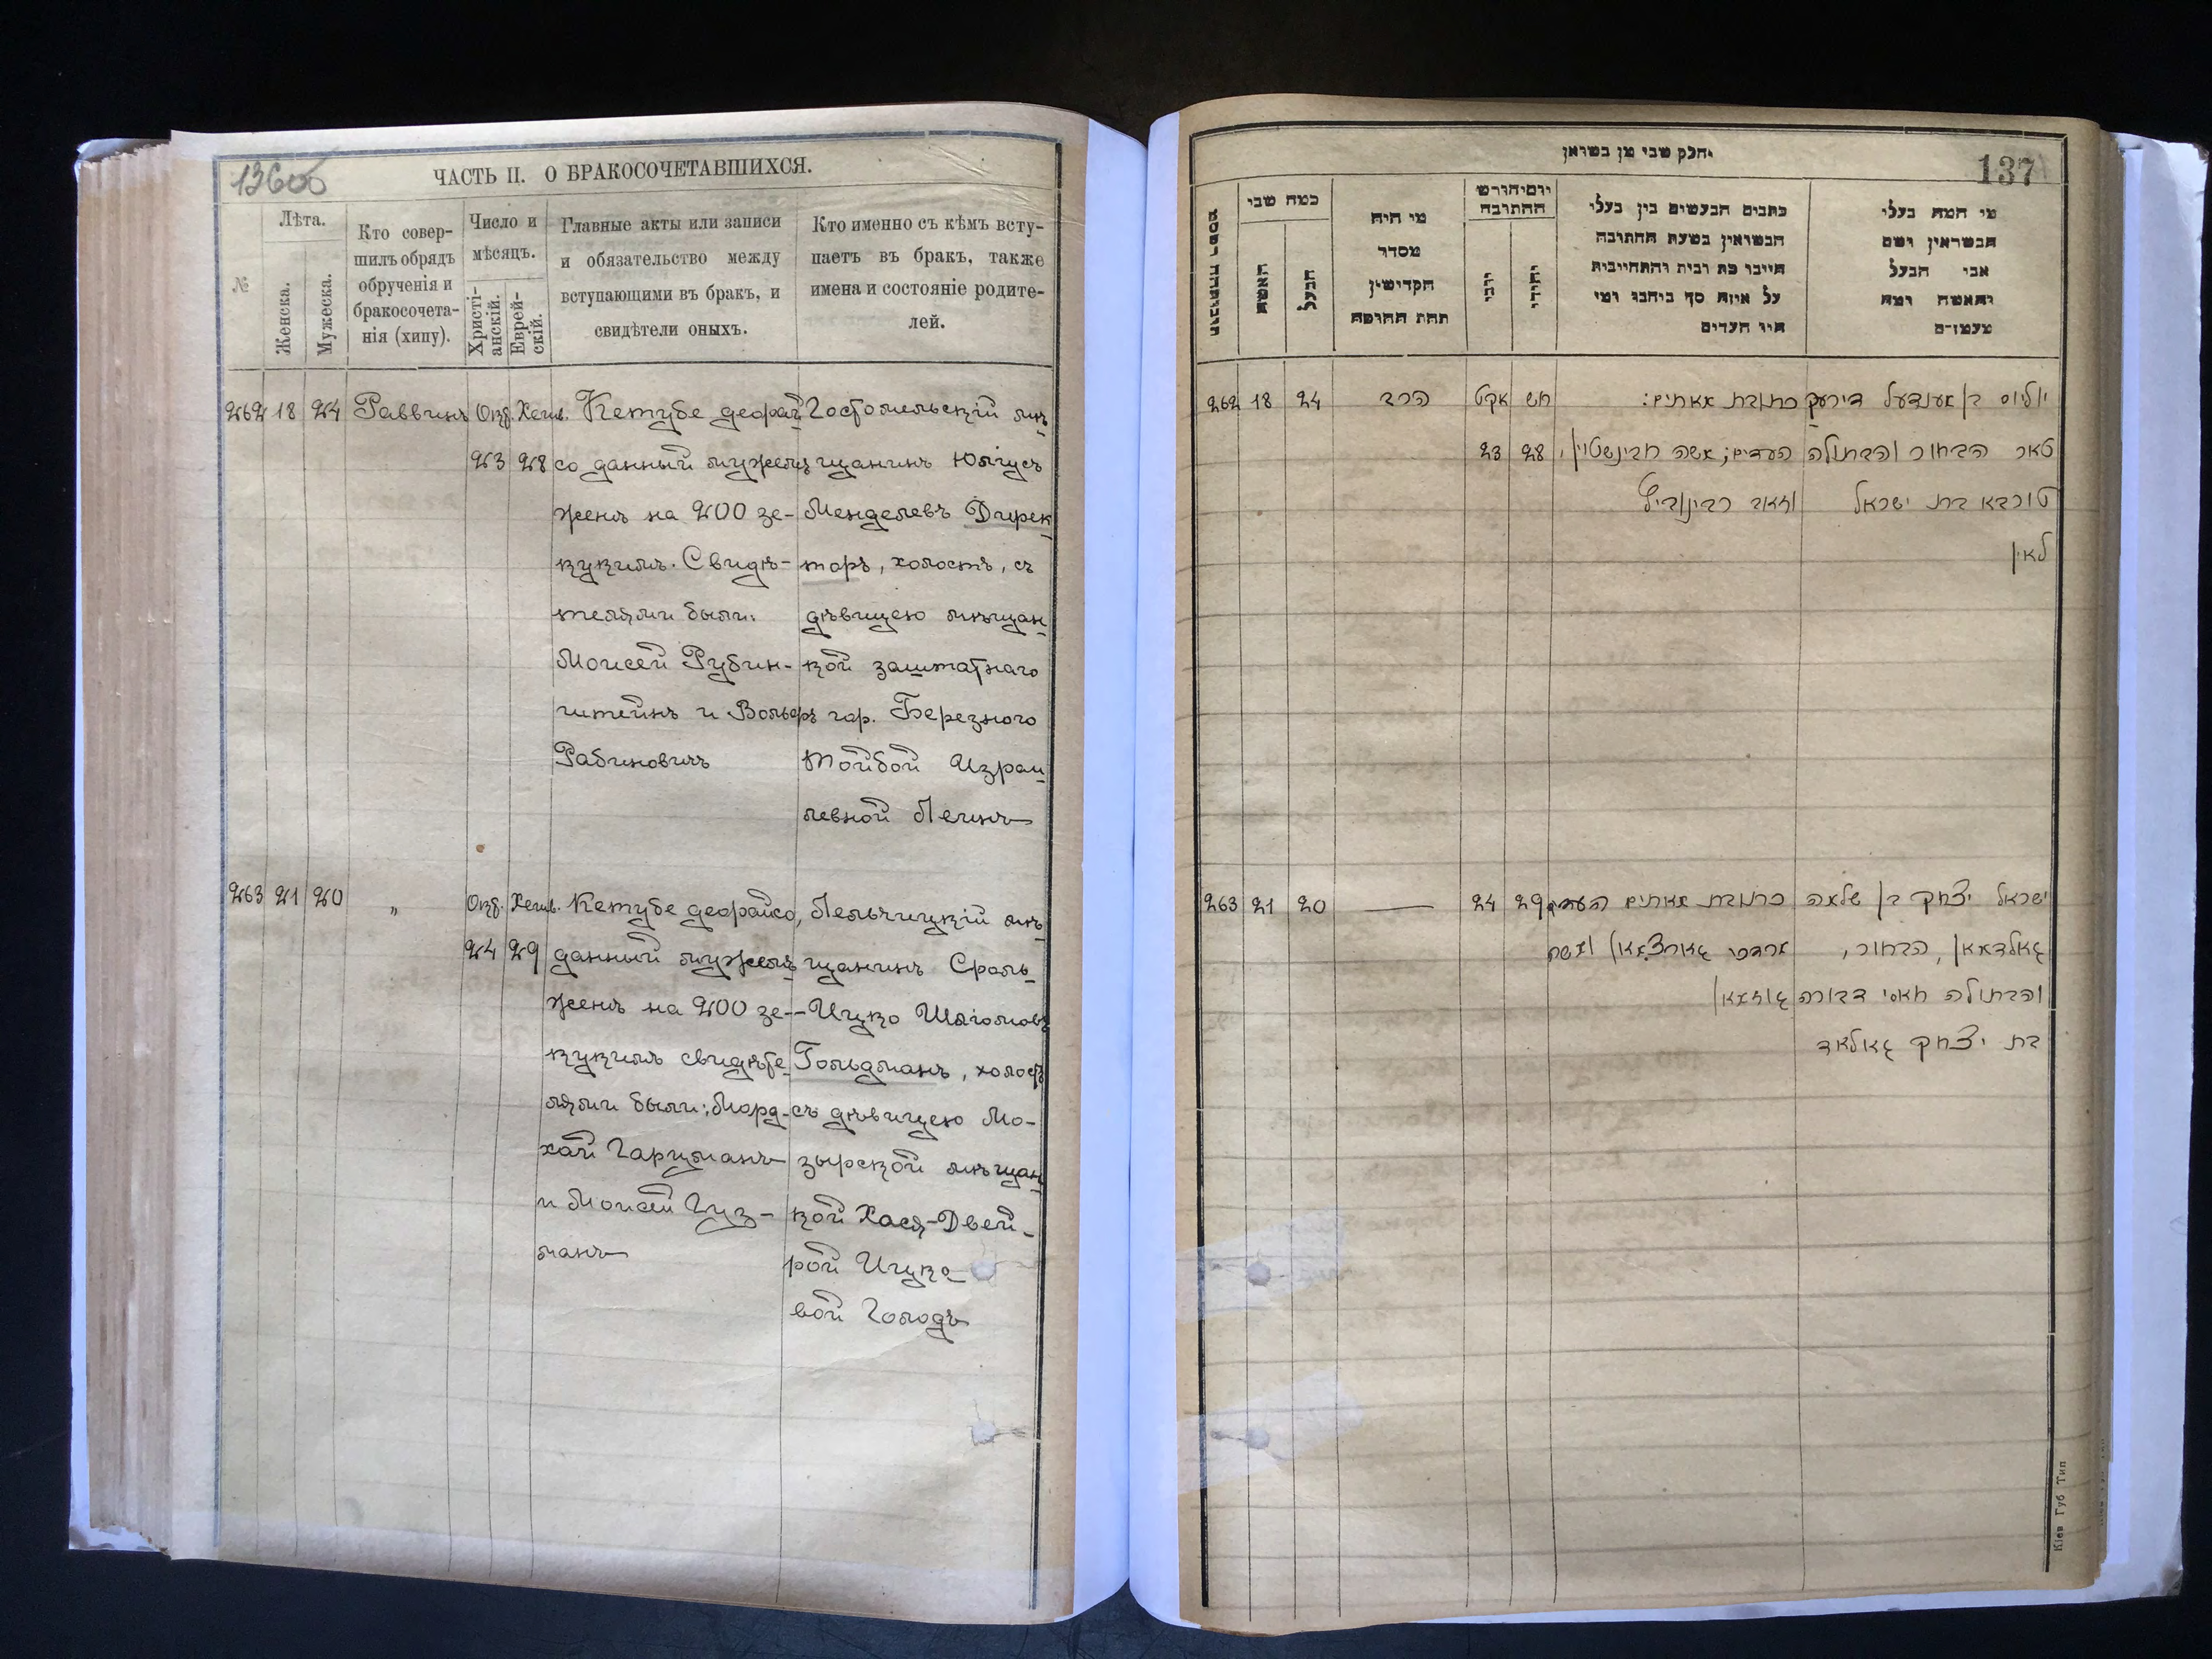 136об
ЧАСТЬ II. О БРАКОСОЧЕТАВШИХСЯ.
№
Лѣта.
Женска.
Мужеска.
Кто совер-
шилъ обрядъ
обрученія и
бракосочета-
нія (хипу).
Число и
мѣсяцъ.
Христі-
анскій.
Еврей-
скій.
Главные акты или записи
и обязательство между
вступающими въ бракъ, и
свидѣтели оныхъ.
Кто именно съ кѣмъ всту-
паетъ въ бракъ, также
имена и состояніе родите-
лей.
262 18 24 Раввинъ Окт. Хешв.
23 28
Кетубе деорай
со данный мужемъ
женѣ на 200 зе-
кукимъ. Свидѣ-
телями были:
Моисей Рубин-
штейнъ и Вольфъ
Рабиновичъ
Гостомельскій мѣ
щанинъ Юліусъ
Менделевъ Дирек
торъ, холостъ, съ
дѣвицею мѣщан
кой заштатнаго
гор. Березного
Тойбой Израи
левной Леинъ
263 21 20 „ Окт. Хешв.
24 29
Кетубе деорайсо,
данный мужемъ
женѣ на 200 зе-
кукимъ свидѣте
лями были: Морд-
хай Гарцманъ
и Моисей Гуз-
манъ
Лельчицкій мѣ
щанинъ Сроль
-Ицко Шліомовъ
Гольдманъ, холостъ
съ дѣвицею Мо-
зырской мѣщан
кой Хася-Двей-
рой Ицко
вой Голодъ
יחלק שבי מן בשואן
137
מי המה בעלי
הנשואין ושם
אבי הבעל
והאשה ומה
מעמדם
כתבים הנעשים בין בעלי
הנשואין בשעת החתונה
על איזה סך
היו העדים
יום וחודש
החתובה
יהודי
מי היה
מסדר
הקדישין
תחת החופה
כמה שני
הבעל
האשה
262 18 24 הרב אקט חש
23 28
כתובת מאתים:
העדים; משה רובינשטיין,
וזאב רבינוביץ
יוליוס בן מענדעל דירעק
טאר הבחור והבתולה
טויבא בת ישראל
לאין
263 21 20 24 29
כתובת מאתים העדים
מרדכי גארצמאן ומשה
גוזמאן
ישראל יצחק בן שלמה
גאלדמאן, הבחור,
והבתולה חאסי דבורה
בת יצחק גאלאד
Кіев Губ Тип